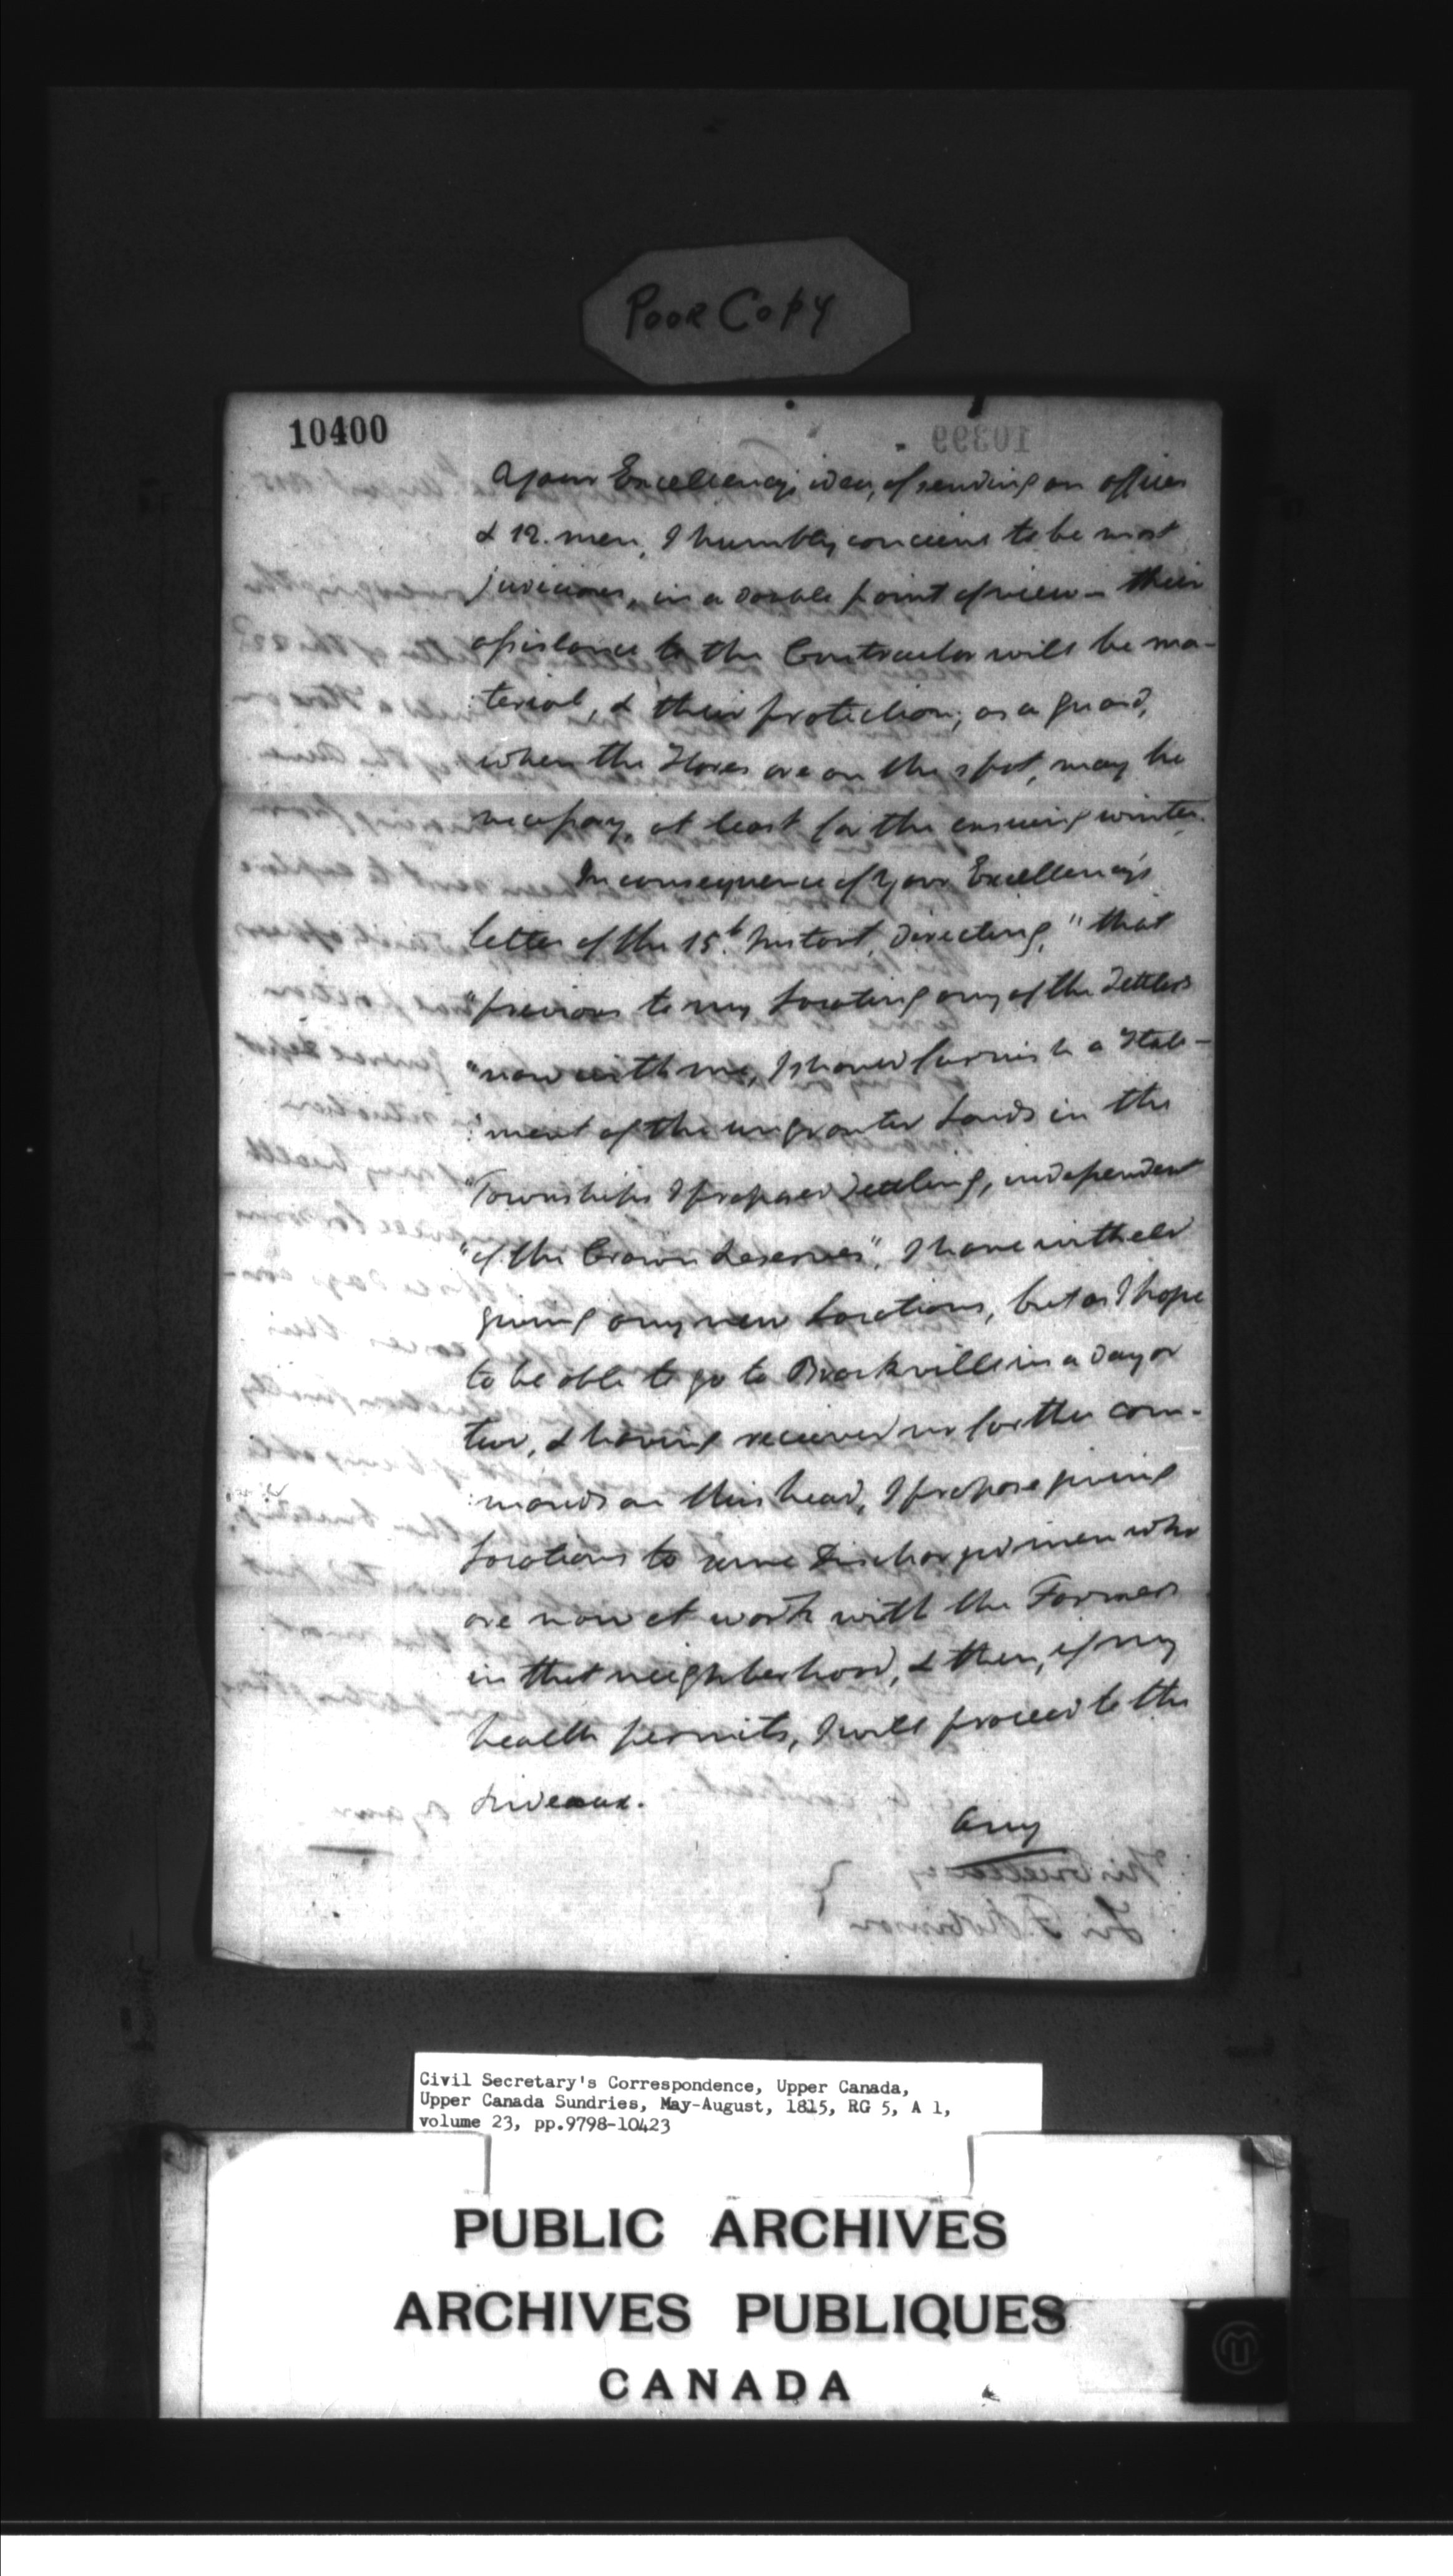 Poor Copy
10400
10399
Your Excellency's idea, of sending an officer
& 12. men, I humbly conceive to be most
judicious, in a double point of view – their
assistance to the Contractor will be ma-
terial, & their protection, as a guard,
when the Stores are on the spot, may be
necessary, at least for the ensuing winter.
In consequence of Your Excellency's
letter of the 15t. Instant, directing, "that
"previous to my Locating any of the Settlers
"now with me, I should furnish a State-
"ment of the ungranted Lands in the
"Townships I proposed Settling, independent
"of the Crown Reserves", I have witheld
giving any new Locations, but as I hope
to be able to go to Brockville in a day or
two, & having received no further com-
:mands on this head, I propose giving
Locations to some Discharged men who
are now at work with the Farmers
in that neighborhood, & then, if my
health permits, I will proceed to the
Rideaux.
Any
His Excellency
Sir F. Robinson
Civil Secretary's Correspondence, Upper Canada,
Upper Canada Sundries, May-August, 1815, RG 5, A 1,
volume 23, pp.9798-10423
PUBLIC ARCHIVES
ARCHIVES PUBLIQUES
CANADA